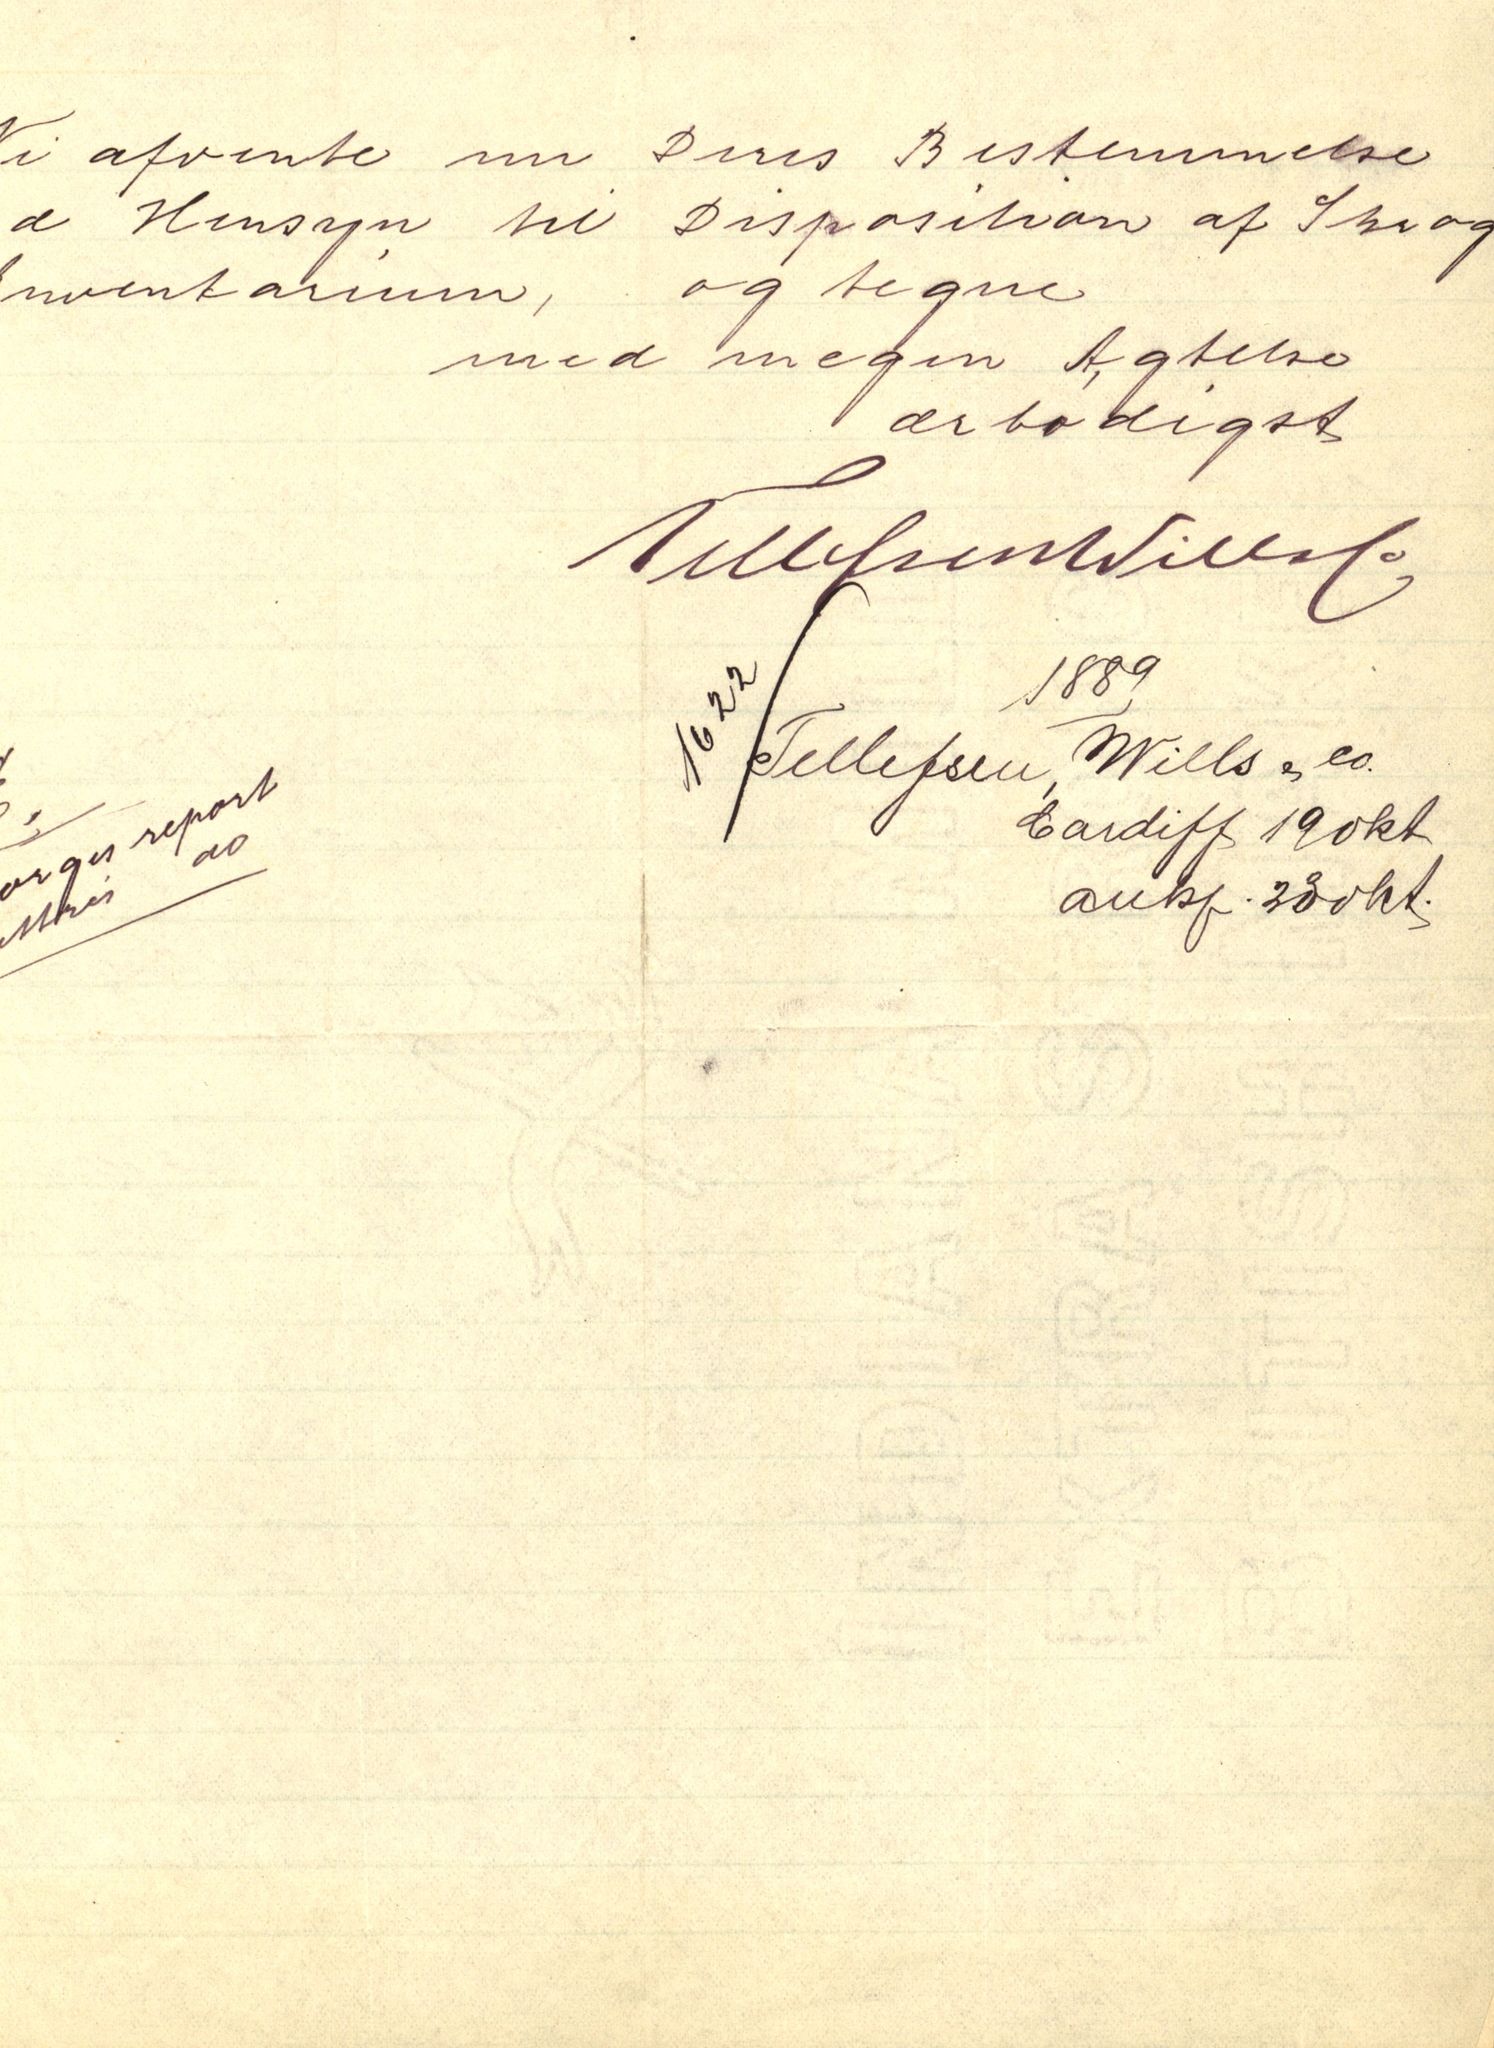 Vi afvente nu Deres Bestemmelse
d Hensyn til Disposition af Skrog
Inventarium, og tegne
med megen Agtelse
ærbødigst
Tellefsen Wills Co
1622
1889
Tellefsen, Wills & co.
Cardiff 19 okt
ankf. 23 okt.
orges report
do